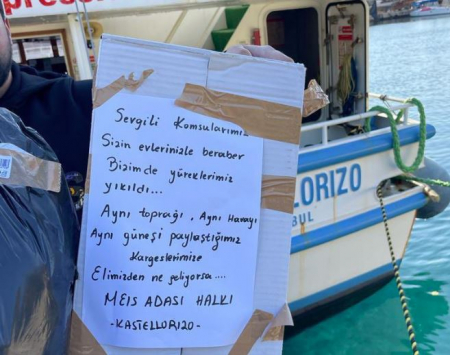 press
Sevgili Komsularımız
Sizin evlerinizle beraber
Bizimde yüreklerimiz
yıkıldı...
Aynı toprağı, Aynı Havayı
Aynı güneşi paylaştığımız
Kargeslerimize
Elimizden ne geliyorsa....
MEIS ADASI HALKI
-KASTELLORIZO-
LORIZO
BUL